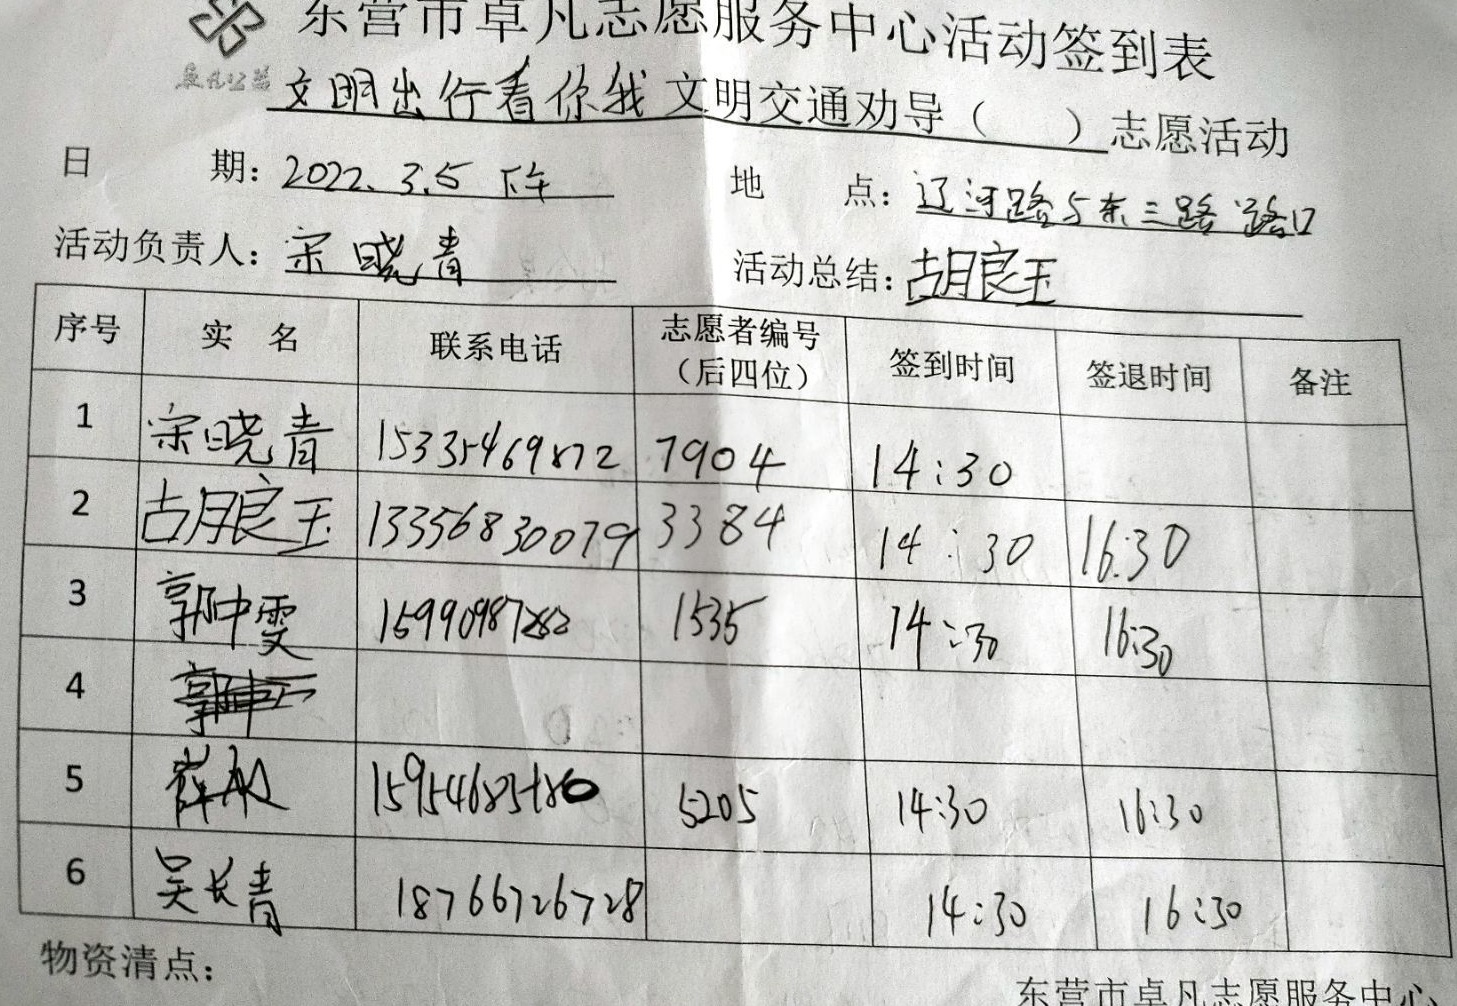 东营市卓凡志愿服务中心活动签到表
卓凡公益
文明出行看你我 文明交通劝导（ ）志愿活动
日 期：2022.3.5 下午 地 点：辽河路与东三路路口
活动负责人：宋晓青 活动总结：胡良玉
序号 实 名 联系电话 志愿者编号（后四位） 签到时间 签退时间 备注
1 宋晓青 15335469872 7904 14:30
2 胡良玉 13356830079 3384 14:30 16:30
3 郭中雯 1535 14:30 16:30
4
5 崔 5205 14:30 16:30
6 吴长青 18766726728 14:30 16:30
物资清点：
东营市卓凡志愿服务中心